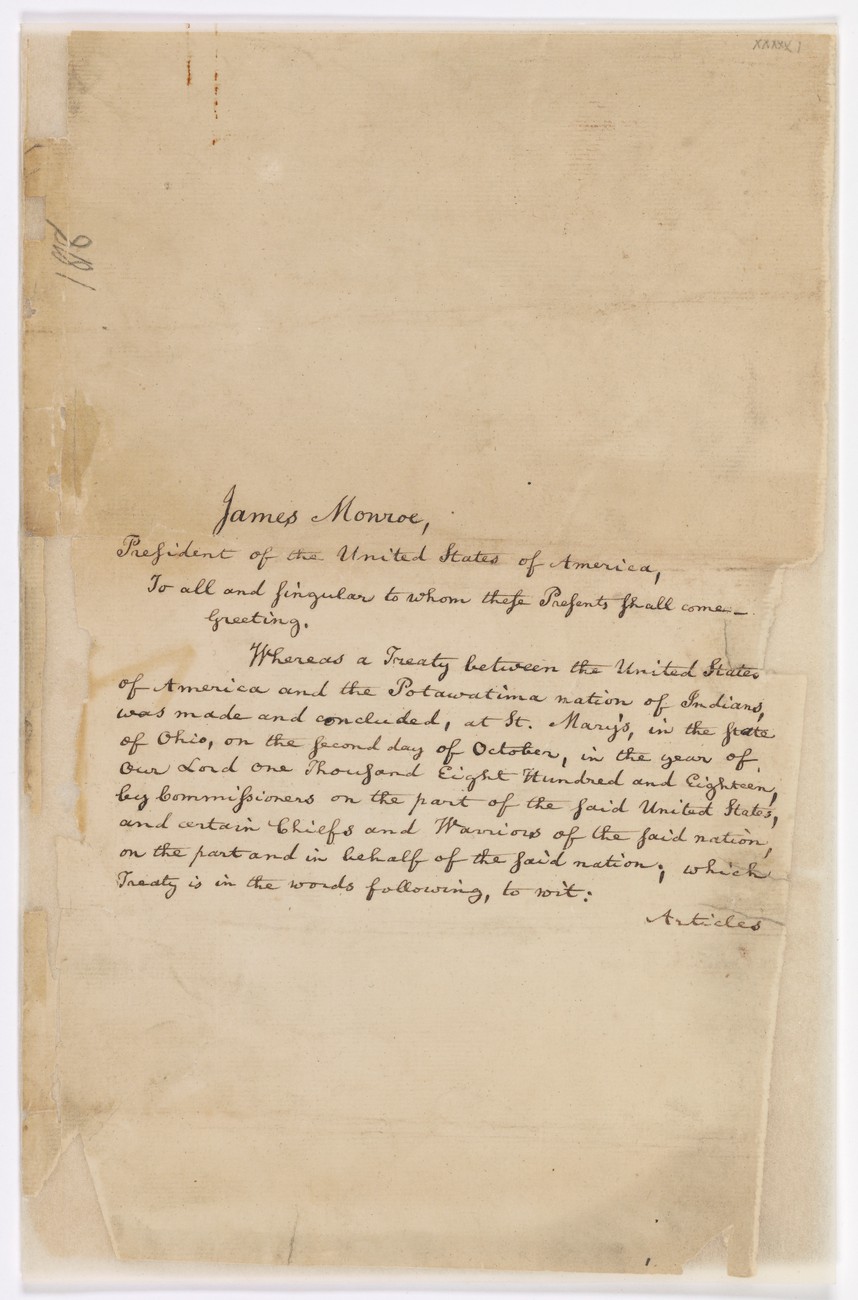 James Monroe,
President of the United States of America,
To all and singular to whom these Presents shall come—
Greeting.
Whereas a Treaty between the United States
of America and the Potawatima nation of Indians,
was made and concluded, at St. Mary's, in the state
of Ohio, on the second day of October, in the year of
Our Lord One Thousand Eight Hundred and Eighteen,
by Commissioners on the part of the said United States,
and certain Chiefs and Warriors of the said nation,
on the part and in behalf of the said nation; which
Treaty is in the words following, to wit:
Articles